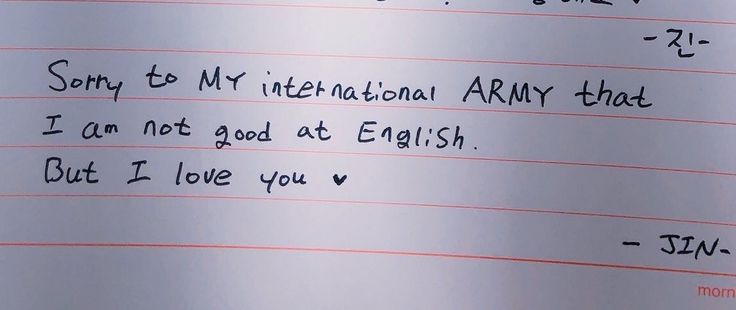 -진-
Sorry to MY international ARMY that
I am not good at English.
But I love you ♥
- JIN-
morn